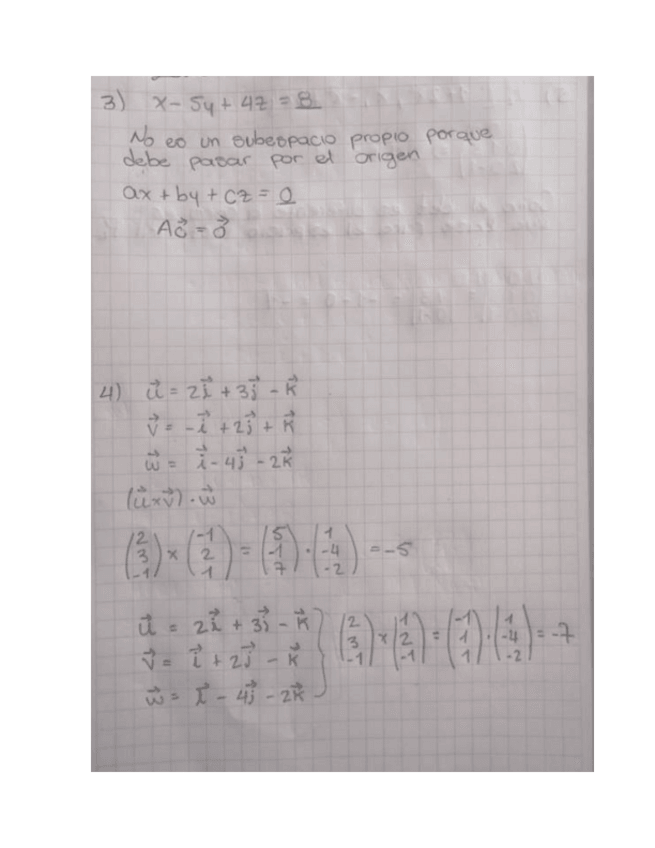 3) x - 5y + 4z = 8
No es un subespacio propio porque
debe pasar por el origen
ax + by + cz = 0
A\vec{0} = \vec{0}
4) \vec{u} = 2\vec{i} + 3\vec{j} - \vec{k}
\vec{v} = -\vec{i} + 2\vec{j} + \vec{k}
\vec{w} = \vec{i} - 4\vec{j} - 2\vec{k}
(\vec{u} x \vec{v}) · \vec{w}
\begin{pmatrix} 2 \\ 3 \\ -1 \end{pmatrix} x \begin{pmatrix} -1 \\ 2 \\ 1 \end{pmatrix} = \begin{pmatrix} 5 \\ -1 \\ 7 \end{pmatrix} · \begin{pmatrix} 1 \\ -4 \\ -2 \end{pmatrix} = -5
\vec{u} = 2\vec{i} + 3\vec{j} - \vec{k}
\vec{v} = \vec{i} + 2\vec{j} - \vec{k}
\vec{w} = \vec{i} - 4\vec{j} - 2\vec{k}
} \begin{pmatrix} 2 \\ 3 \\ -1 \end{pmatrix} x \begin{pmatrix} 1 \\ 2 \\ -1 \end{pmatrix} = \begin{pmatrix} -1 \\ 1 \\ 1 \end{pmatrix} · \begin{pmatrix} 1 \\ -4 \\ -2 \end{pmatrix} = -7